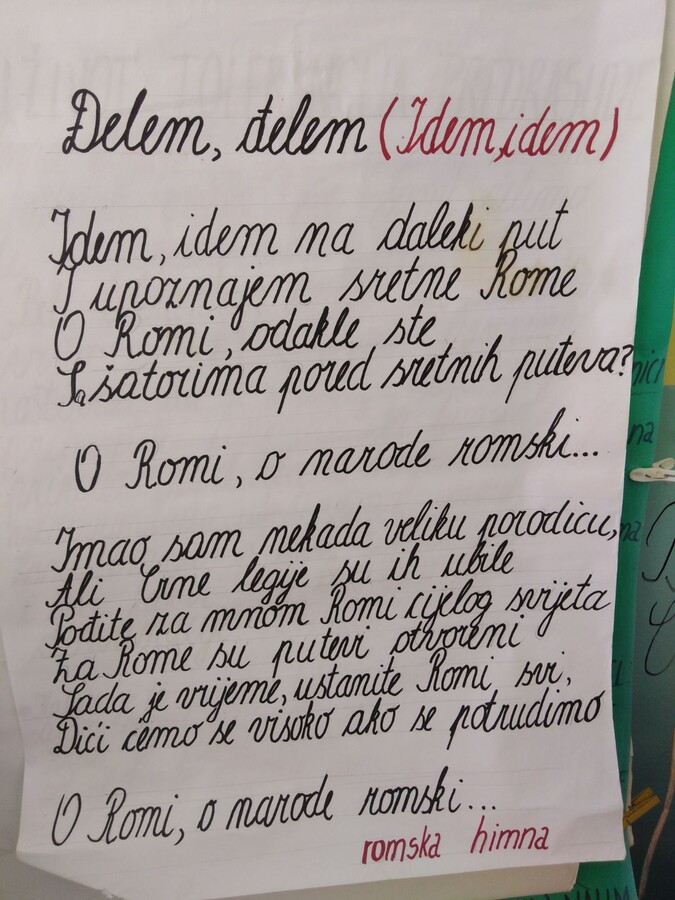 Đelem, đelem (Idem, idem)
Idem, idem na daleki put
I upoznajem sretne Rome
O Romi, odakle ste
Sa šatorima pored sretnih puteva?
O Romi, o narode romski...
Imao sam nekada veliku porodicu,
Ali Crne legije su ih ubile
Pođite za mnom Romi cijelog svijeta
Za Rome su putevi otvoreni
Sada je vrijeme, ustanite Romi svi,
Dići ćemo se visoko ako se potrudimo
O Romi, o narode romski...
romska himna